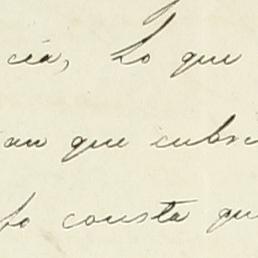 cia, Lo que
an que cubr
fo consta qu